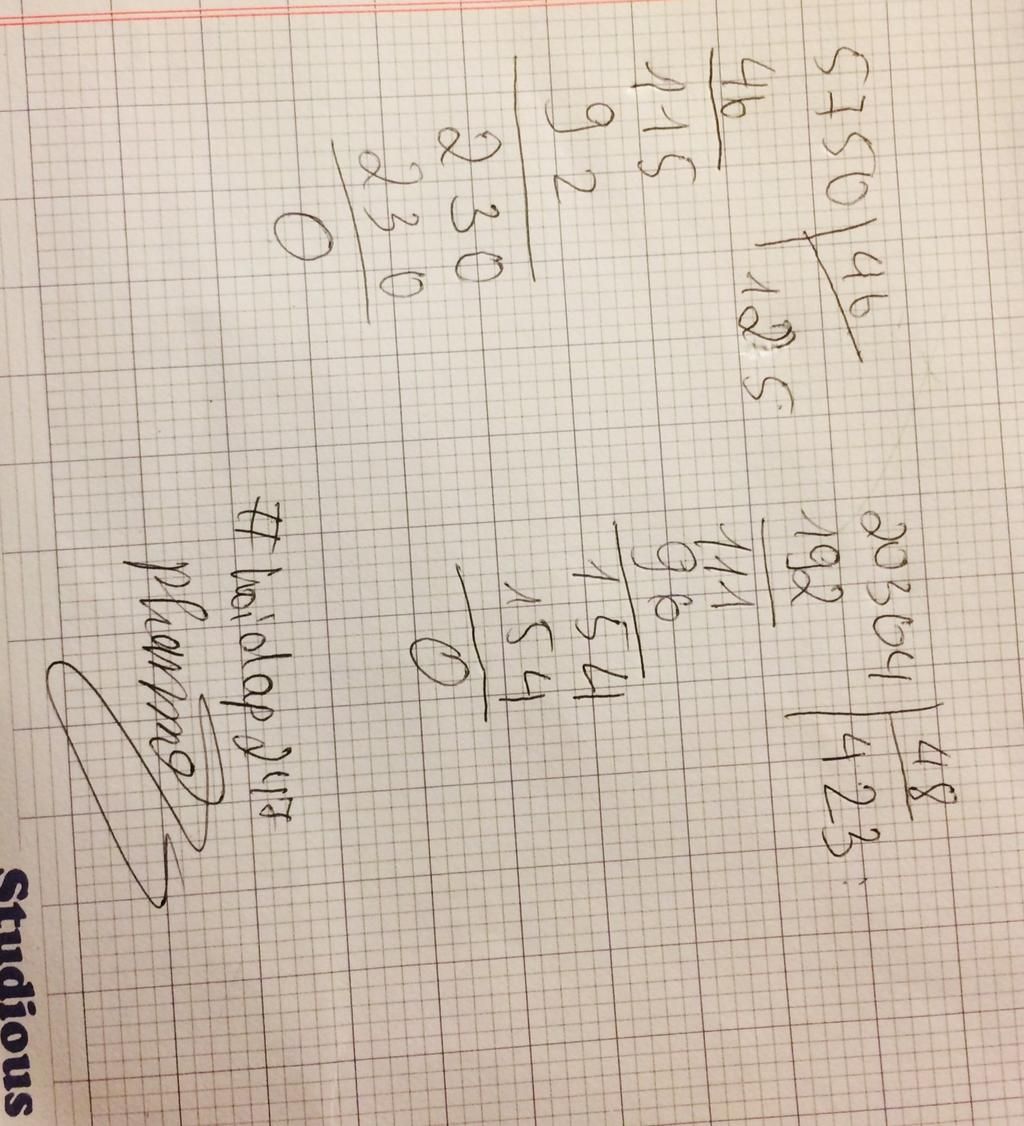 5750 46
46 125
115
92
230
230
0
20364 48
192 423
111
96
154
154
0
# hoidap247
Studious